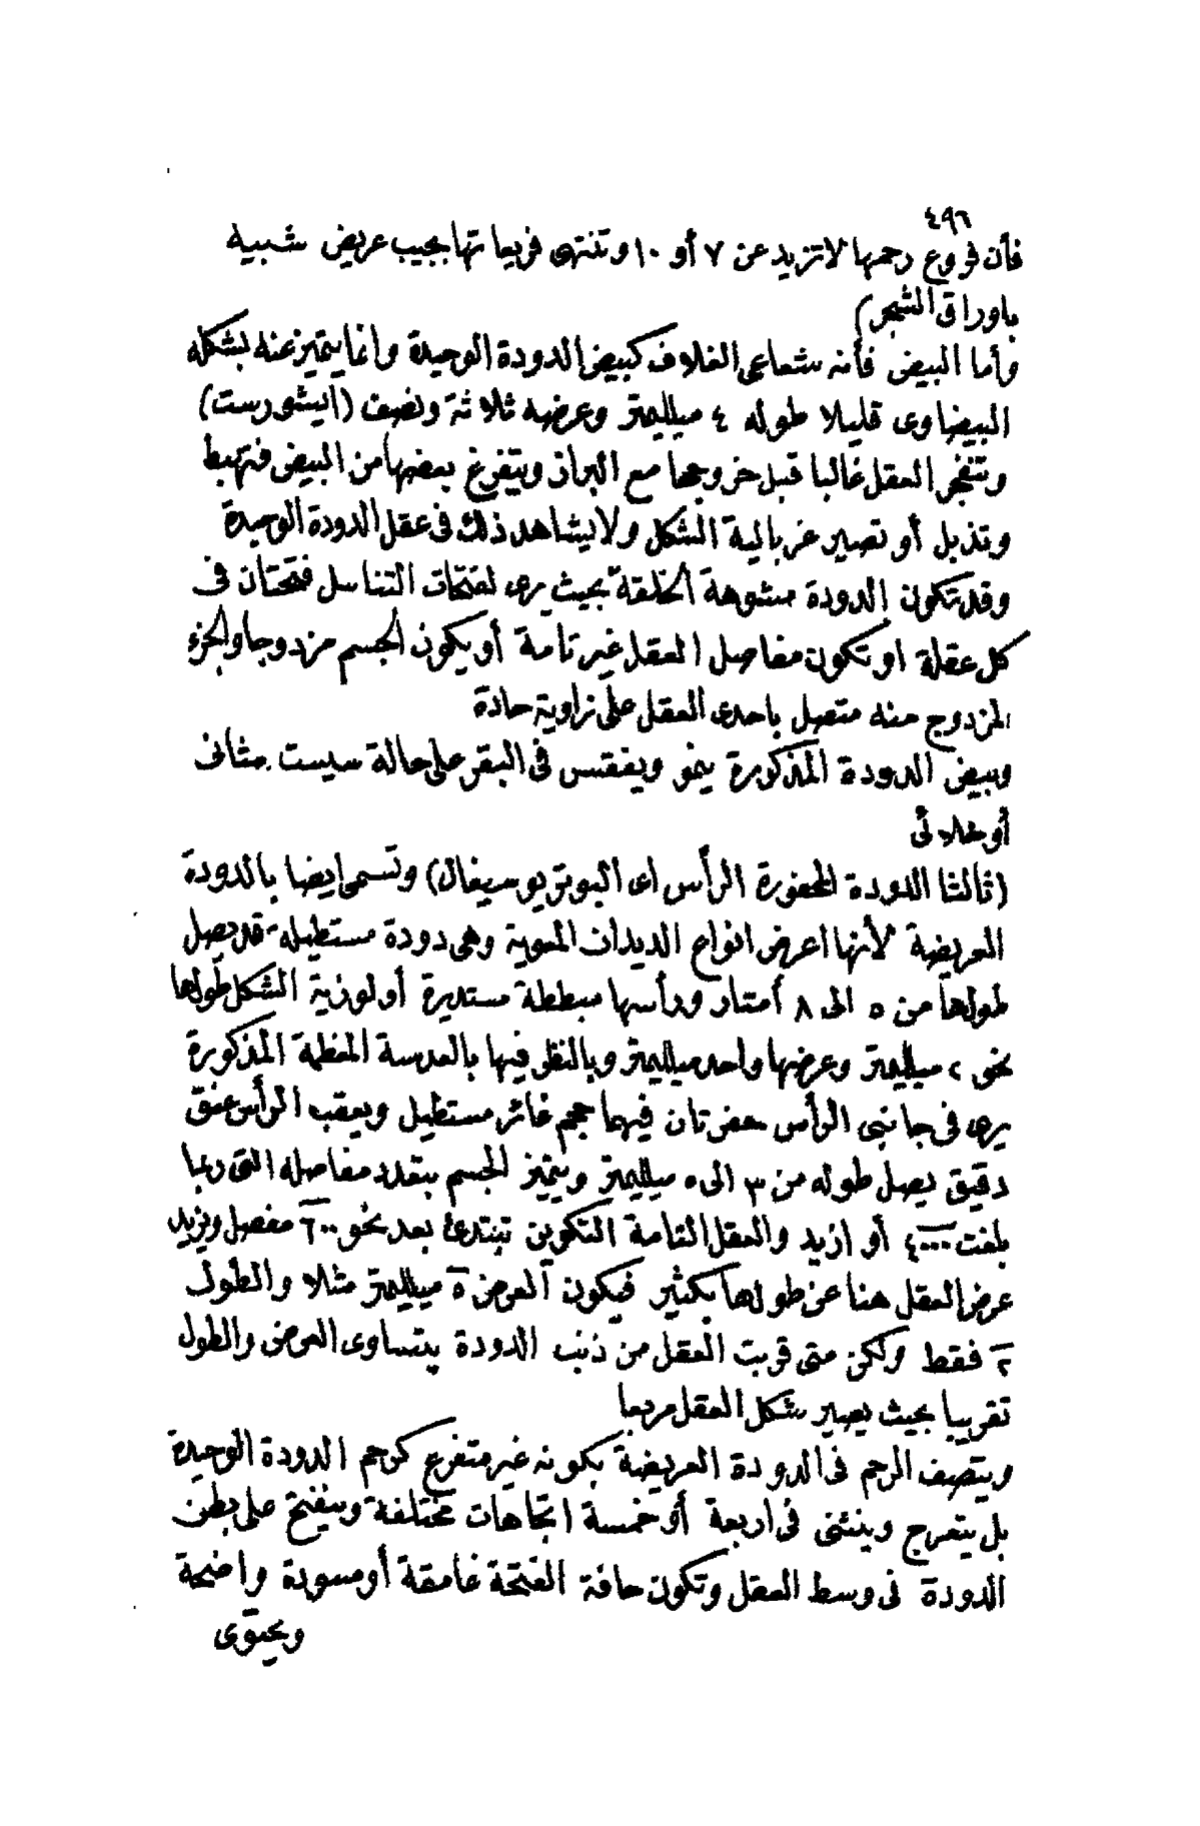 ٤٩٦
فأن فروع رحمها لا تزيد عن ٧ أو ١٠ وتنتهى فريعاتها بجيب عريض شبيه
باوراق الشجر)
وأما البيض فأنه شعاعى الغلاف كبيض الدودة الوحيدة وانما يتميز عنه بشكله
البيضاوى قليلا طوله ٤ ميلليمتر وعرضه ثلاثة ونصف (ايشورست)
وتنفجر العقل غالبا قبل خروجها مع البراز ويتفرغ بعضها من البيض فتهبط
وتذبل أو تصير غربالية الشكل ولا يشاهد ذلك فى عقل الدودة الوحيدة
وقد تكون الدودة مشوهة الخلقة بحيث يرى لفتحات التناسل فتحتان فى
كل عقلة او تكون مفاصل العقل غير تامة أو يكون الجسم مزدوجا والجزء
المزدوج منه متصل باحدى العقل على زاوية حادة
وبيض الدودة المذكورة ينمو ويفقس فى البقر على حالة سيست مثانى
أو خلائى
(ثالثا الدودة المحفورة الرأس اى البوتريوسيفال) وتسمى ايضا بالدودة
العريضة لأنها اعرض انواع الديدان المعوية وهى دودة مستطيله قد يصل
طولها من ٥ الى ٨ أمتار ورأسها مبططة مستديرة أو لوزية الشكل طولها
نحو ٢ ميلليمتر وعرضها واحد ميلليمتر وبالنظر فيها بالعدسة المعظمة المذكورة
يرى فى جانبى الرأس حفرتان فيهما حجم غائر مستطيل ويعقب الرأس عنق
دقيق يصل طوله من ٣ الى ٥ ميلليمتر ويتميز الجسم بتعدد مفاصله التى ربما
بلغت ٤٠٠٠ أو ازيد والعقل التامة التكوين تبتدئ بعد نحو ٦٠٠ مفصل ويزيد
عرض العقل هنا عن طولها بكثير فيكون العرض ٥ ميلليمتر مثلا والطول
٢ فقط ولكن متى قربت العقل من ذنب الدودة يتساوى العرض والطول
تقريبا بحيث يصير شكل العقل مربعا
ويتصف الرحم فى الدودة العريضة بكونه غير متفرع كرحم الدودة الوحيدة
بل يتعرج وينثنى فى اربعة أو خمسة اتجاهات مختلفة وينفتح على بطن
الدودة فى وسط العقل وتكون حافة الفتحة غامقة أو مسودة واضحة
ويحتوى